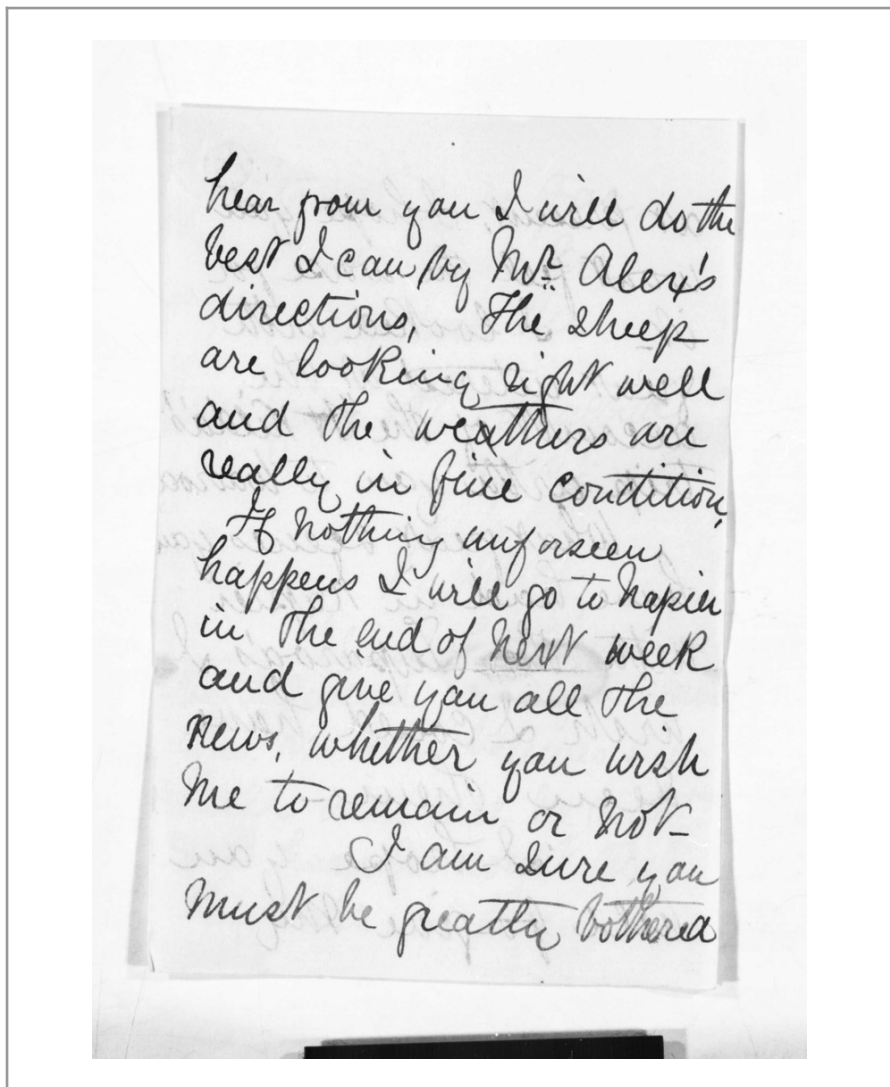 hear from you I will do the
best I can by Mr. Alex's
directions, The sheep
are looking right well
and the weathers are
really in fine condition,
If nothing unforseen
happens I will go to Napier
in the end of next week
and give you all the
news, whether you wish
me to remain or not -
I am sure you
must be greatly bothered